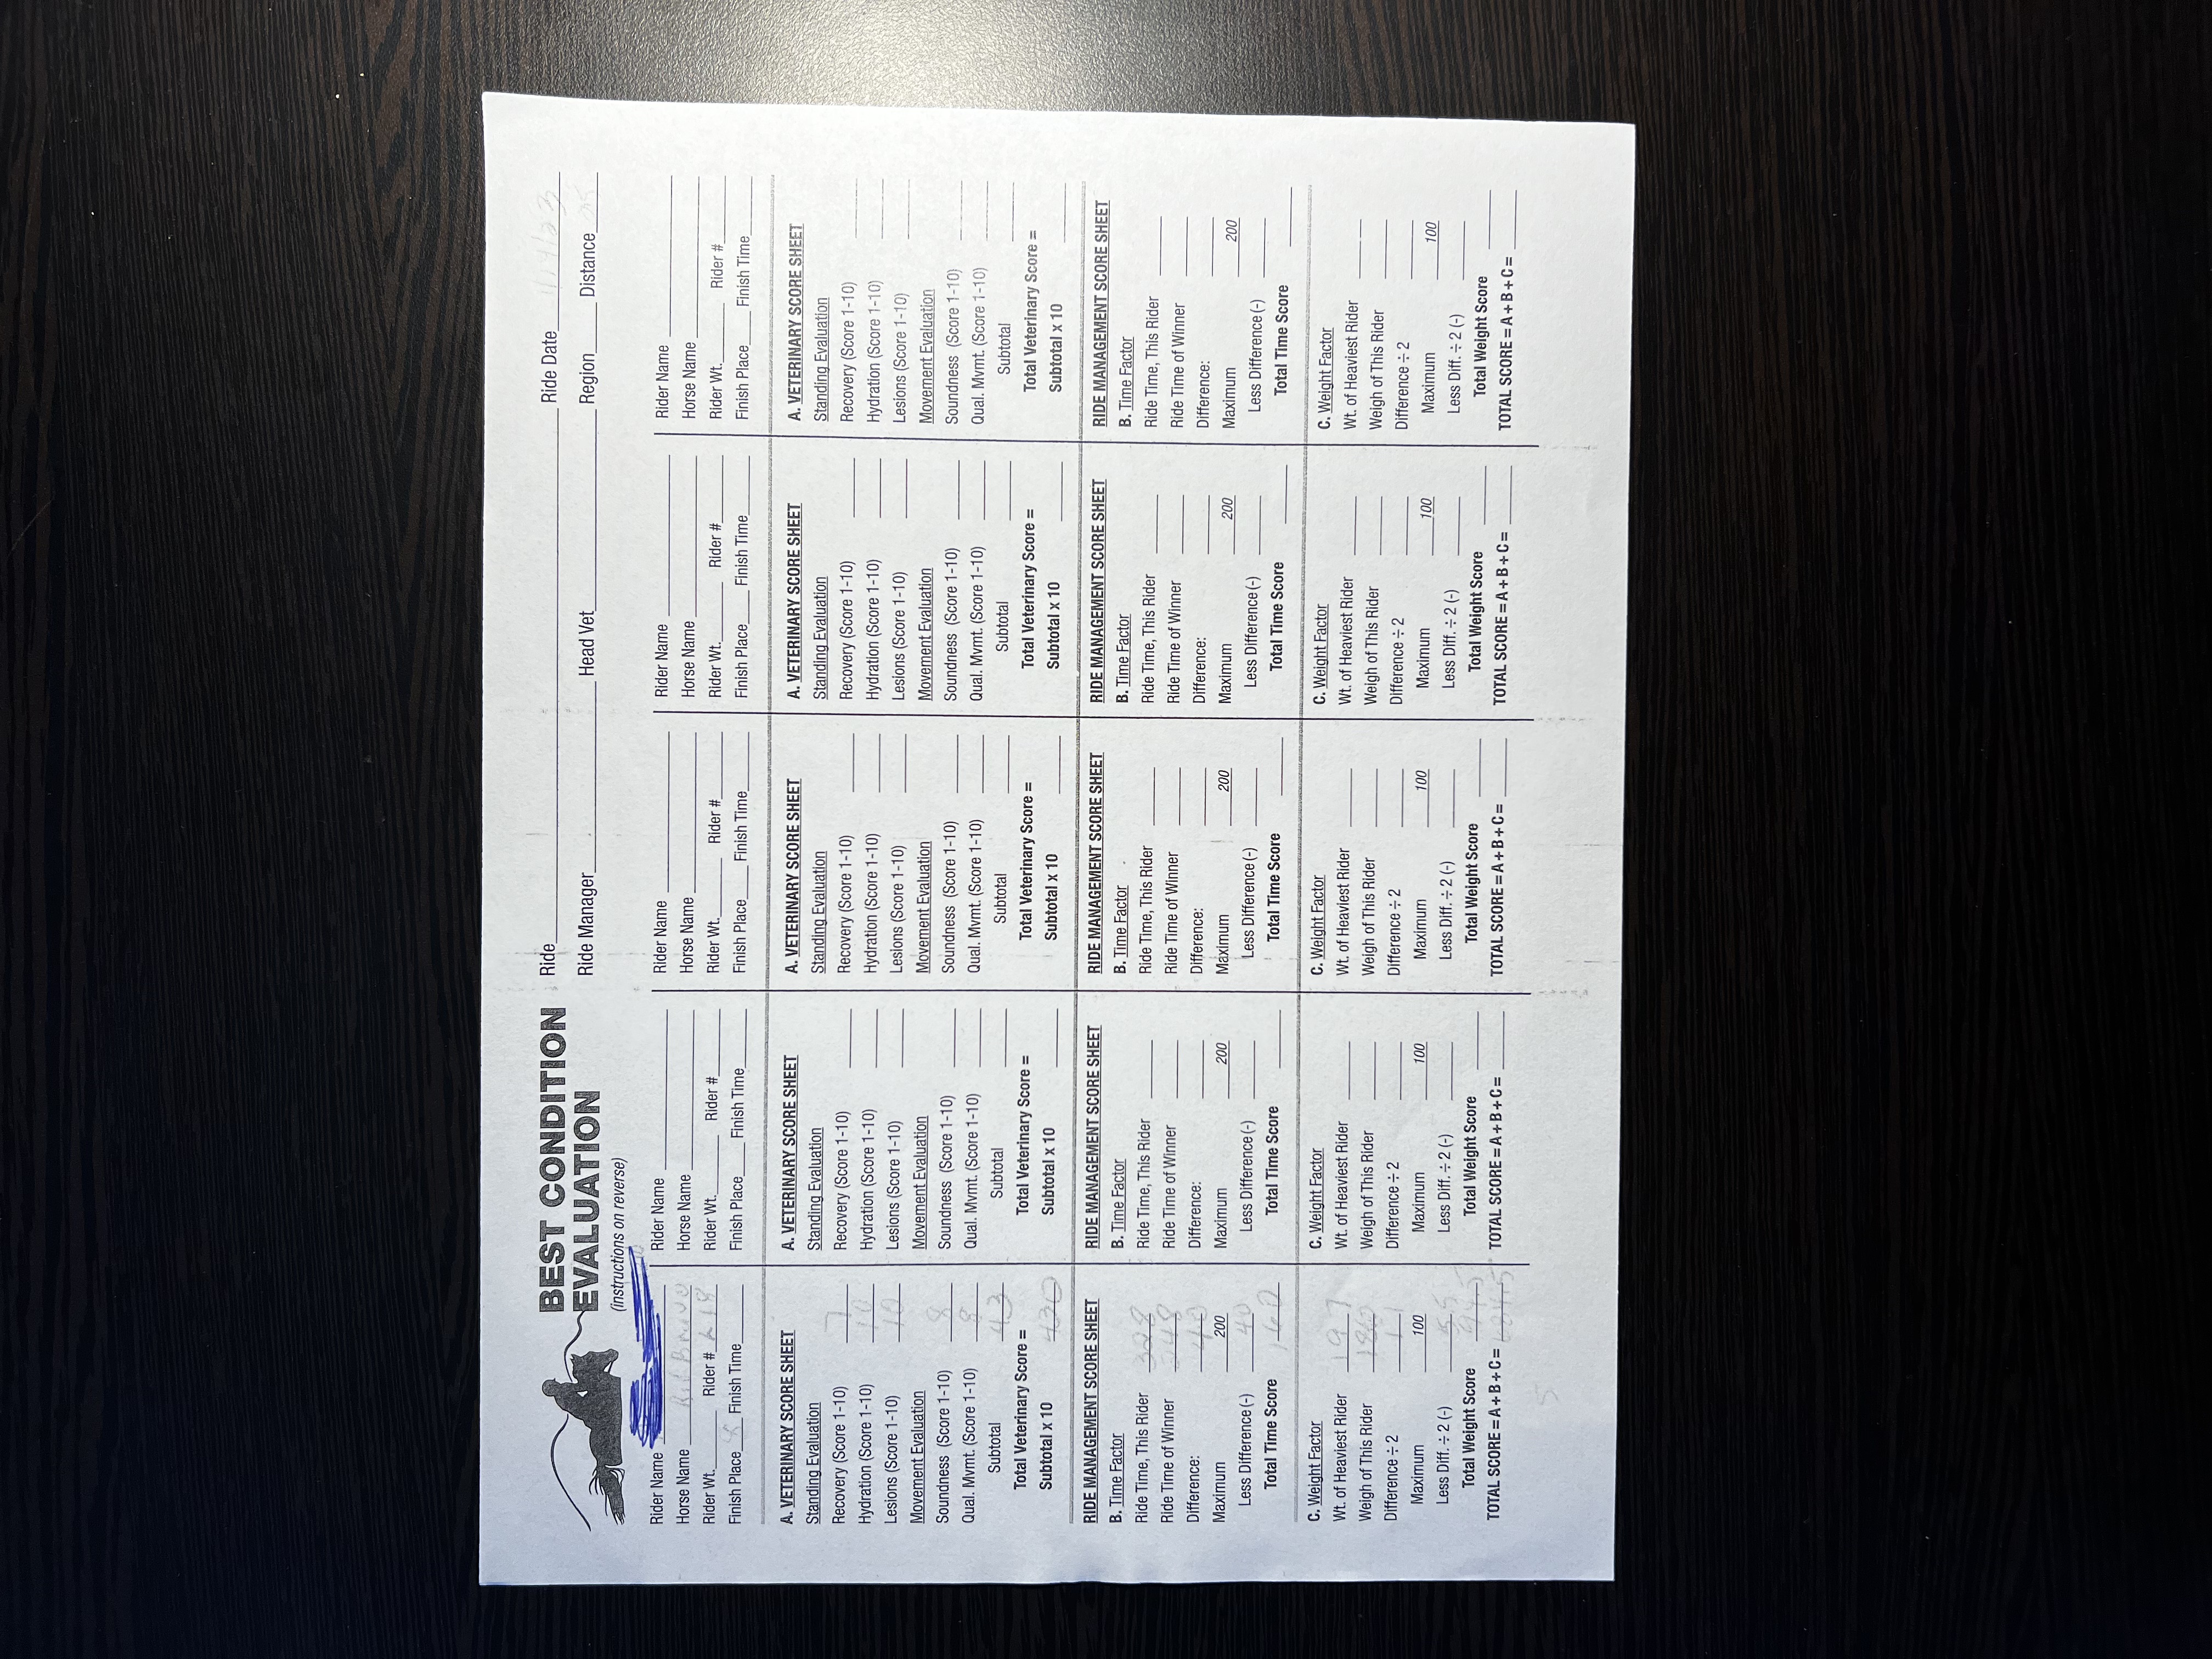 BEST CONDITION
EVALUATION
(instructions on reverse)
Ride Ride Date
Ride Manager Head Vet Region Distance
Rider Name
Horse Name
Rider Wt. Rider # 18
Finish Place Finish Time
A. VETERINARY SCORE SHEET
Standing Evaluation
Recovery (Score 1-10) 7
Hydration (Score 1-10) 10
Lesions (Score 1-10) 10
Movement Evaluation
Soundness (Score 1-10) 8
Qual. Mvmt. (Score 1-10) 8
Subtotal 43
Total Veterinary Score =
Subtotal x 10 430
RIDE MANAGEMENT SCORE SHEET
B. Time Factor
Ride Time, This Rider 328
Ride Time of Winner 248
Difference: 40
Maximum 200
Less Difference (-) 40
Total Time Score 160
C. Weight Factor
Wt. of Heaviest Rider 197
Weigh of This Rider 186
Difference ÷ 2 11
Maximum 100
Less Diff. ÷ 2 (-) 5.5
Total Weight Score 94.5
TOTAL SCORE = A + B + C = 684.5
5
Rider Name
Horse Name
Rider Wt. Rider #
Finish Place Finish Time
A. VETERINARY SCORE SHEET
Standing Evaluation
Recovery (Score 1-10)
Hydration (Score 1-10)
Lesions (Score 1-10)
Movement Evaluation
Soundness (Score 1-10)
Qual. Mvmt. (Score 1-10)
Subtotal
Total Veterinary Score =
Subtotal x 10
RIDE MANAGEMENT SCORE SHEET
B. Time Factor
Ride Time, This Rider
Ride Time of Winner
Difference:
Maximum 200
Less Difference (-)
Total Time Score
C. Weight Factor
Wt. of Heaviest Rider
Weigh of This Rider
Difference ÷ 2
Maximum 100
Less Diff. ÷ 2 (-)
Total Weight Score
TOTAL SCORE = A + B + C =
Rider Name
Horse Name
Rider Wt. Rider #
Finish Place Finish Time
A. VETERINARY SCORE SHEET
Standing Evaluation
Recovery (Score 1-10)
Hydration (Score 1-10)
Lesions (Score 1-10)
Movement Evaluation
Soundness (Score 1-10)
Qual. Mvmt. (Score 1-10)
Subtotal
Total Veterinary Score =
Subtotal x 10
RIDE MANAGEMENT SCORE SHEET
B. Time Factor
Ride Time, This Rider
Ride Time of Winner
Difference:
Maximum 200
Less Difference (-)
Total Time Score
C. Weight Factor
Wt. of Heaviest Rider
Weigh of This Rider
Difference ÷ 2
Maximum 100
Less Diff. ÷ 2 (-)
Total Weight Score
TOTAL SCORE = A + B + C =
Rider Name
Horse Name
Rider Wt. Rider #
Finish Place Finish Time
A. VETERINARY SCORE SHEET
Standing Evaluation
Recovery (Score 1-10)
Hydration (Score 1-10)
Lesions (Score 1-10)
Movement Evaluation
Soundness (Score 1-10)
Qual. Mvmt. (Score 1-10)
Subtotal
Total Veterinary Score =
Subtotal x 10
RIDE MANAGEMENT SCORE SHEET
B. Time Factor
Ride Time, This Rider
Ride Time of Winner
Difference:
Maximum 200
Less Difference (-)
Total Time Score
C. Weight Factor
Wt. of Heaviest Rider
Weigh of This Rider
Difference ÷ 2
Maximum 100
Less Diff. ÷ 2 (-)
Total Weight Score
TOTAL SCORE = A + B + C =
Rider Name
Horse Name
Rider Wt. Rider #
Finish Place Finish Time
A. VETERINARY SCORE SHEET
Standing Evaluation
Recovery (Score 1-10)
Hydration (Score 1-10)
Lesions (Score 1-10)
Movement Evaluation
Soundness (Score 1-10)
Qual. Mvmt. (Score 1-10)
Subtotal
Total Veterinary Score =
Subtotal x 10
RIDE MANAGEMENT SCORE SHEET
B. Time Factor
Ride Time, This Rider
Ride Time of Winner
Difference:
Maximum 200
Less Difference (-)
Total Time Score
C. Weight Factor
Wt. of Heaviest Rider
Weigh of This Rider
Difference ÷ 2
Maximum 100
Less Diff. ÷ 2 (-)
Total Weight Score
TOTAL SCORE = A + B + C =